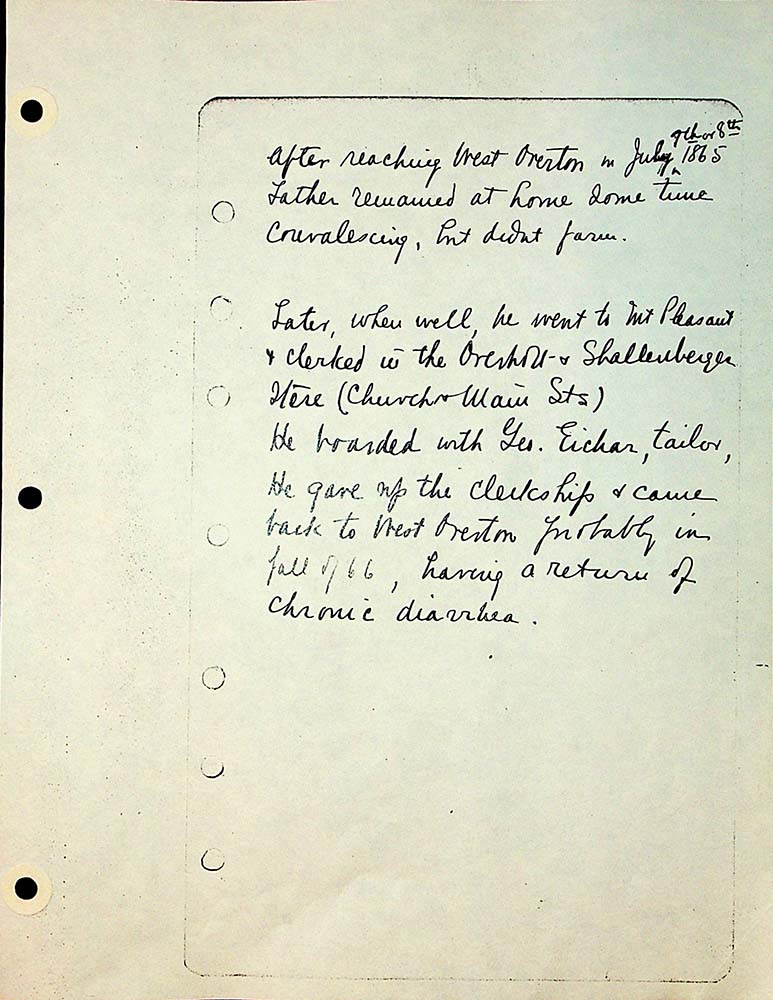 After reaching West Overton in July 7th or 8th 1865
Father remained at home some time
Convalescing, but didnt farm.
Later, when well, he went to Mt Pleasant
& clerked in the Overholt & Shallenberger
Store (Church & Main Sts)
He boarded with Geo. Eichar, tailor,
He gave up the clerkship & came
back to West Overton probably in
fall of 66, having a return of
chronic diarrhea.